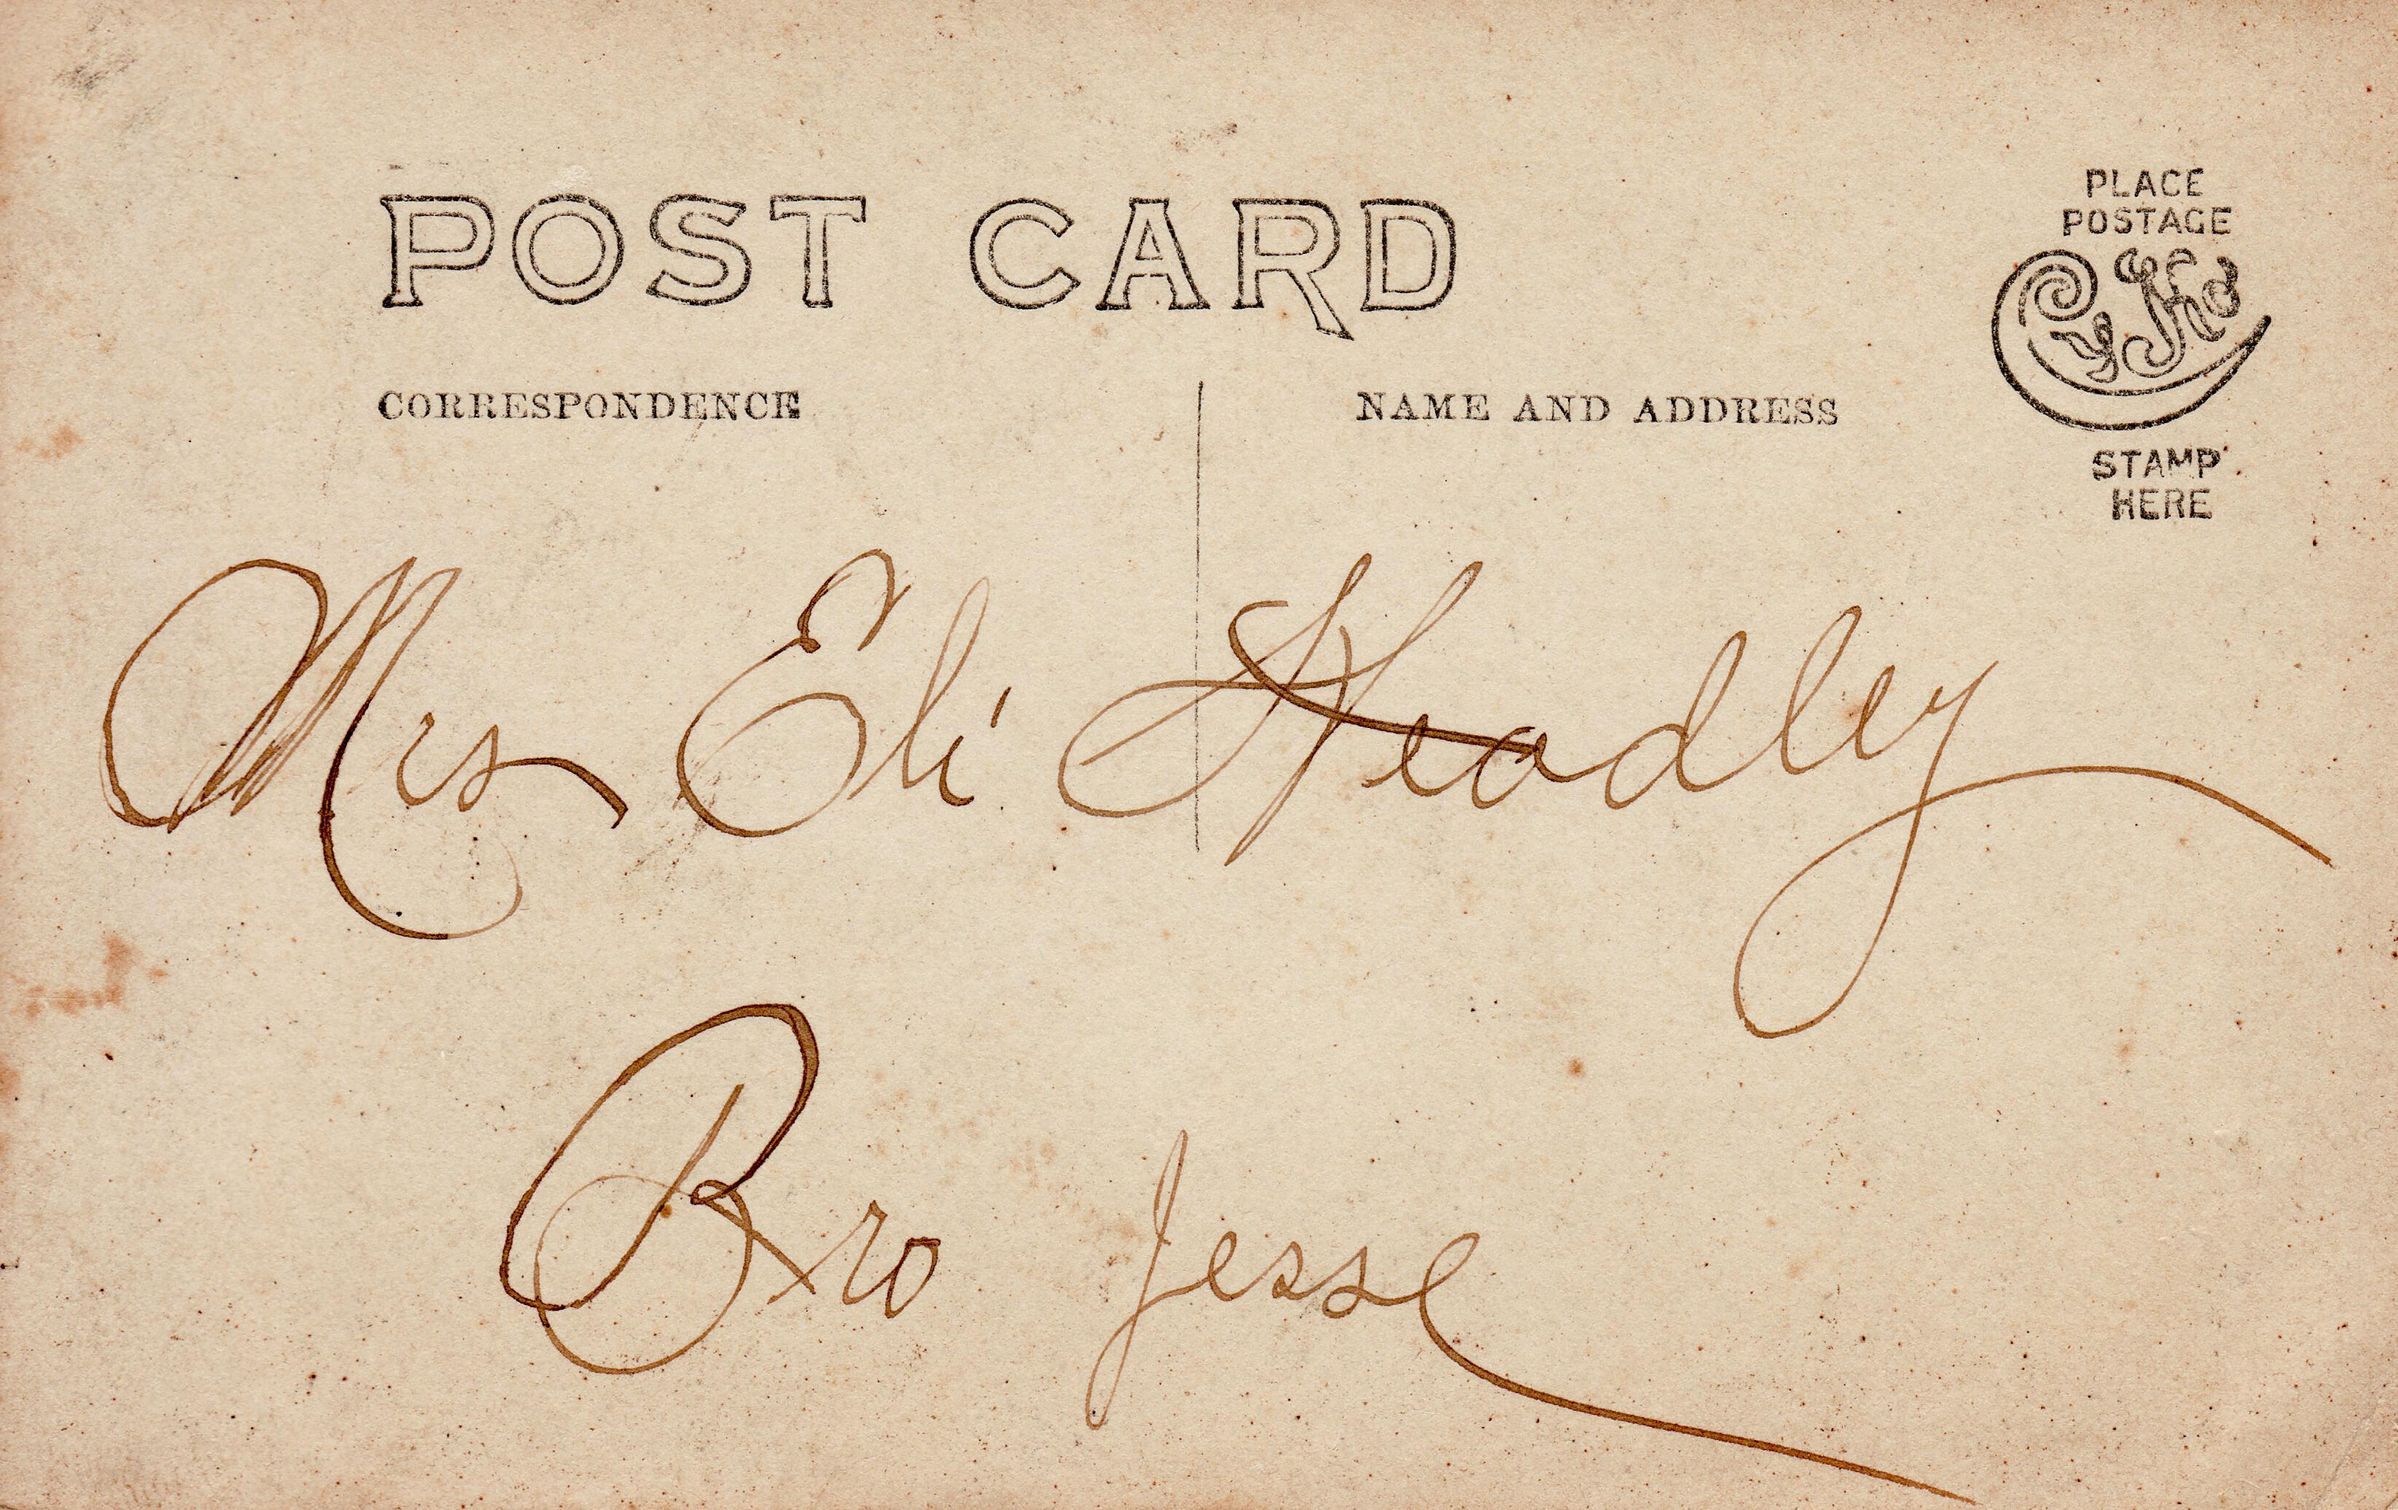 POST CARD
PLACE
POSTAGE
STAMP
HERE
CORRESPONDENCE
NAME AND ADDRESS
Mrs Eli Headley
Bro Jesse